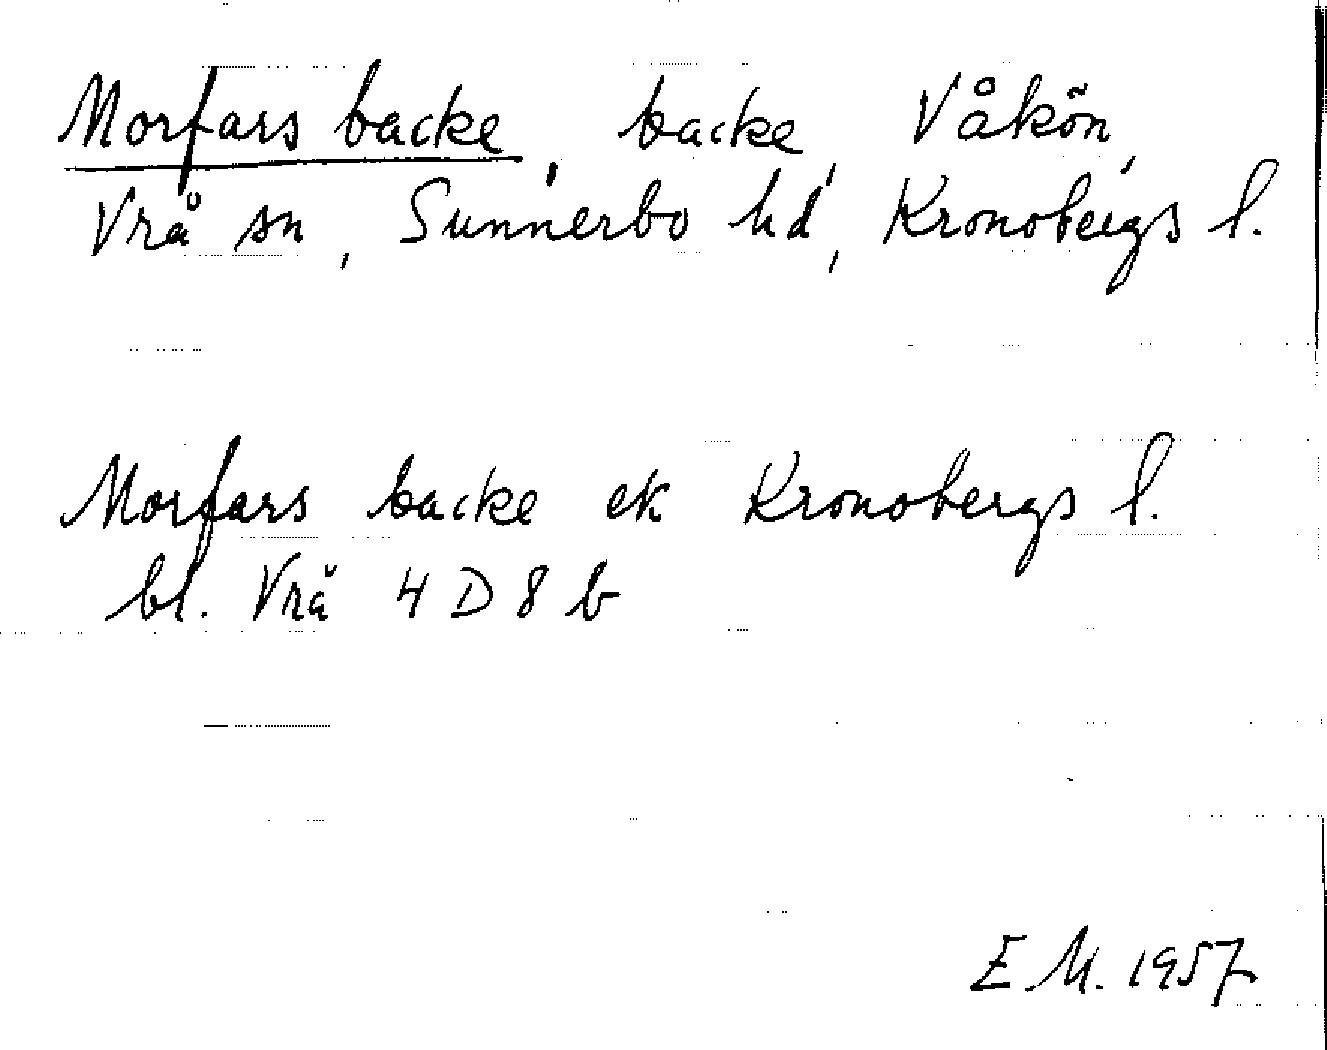 Morfars backe, backe, Våkön,
Vrå sn, Sunnerbo hd, Kronobergs l.
Morfars backe ek Kronobergs l.
bl. Vrå 4 D 8 b
E M. 1957